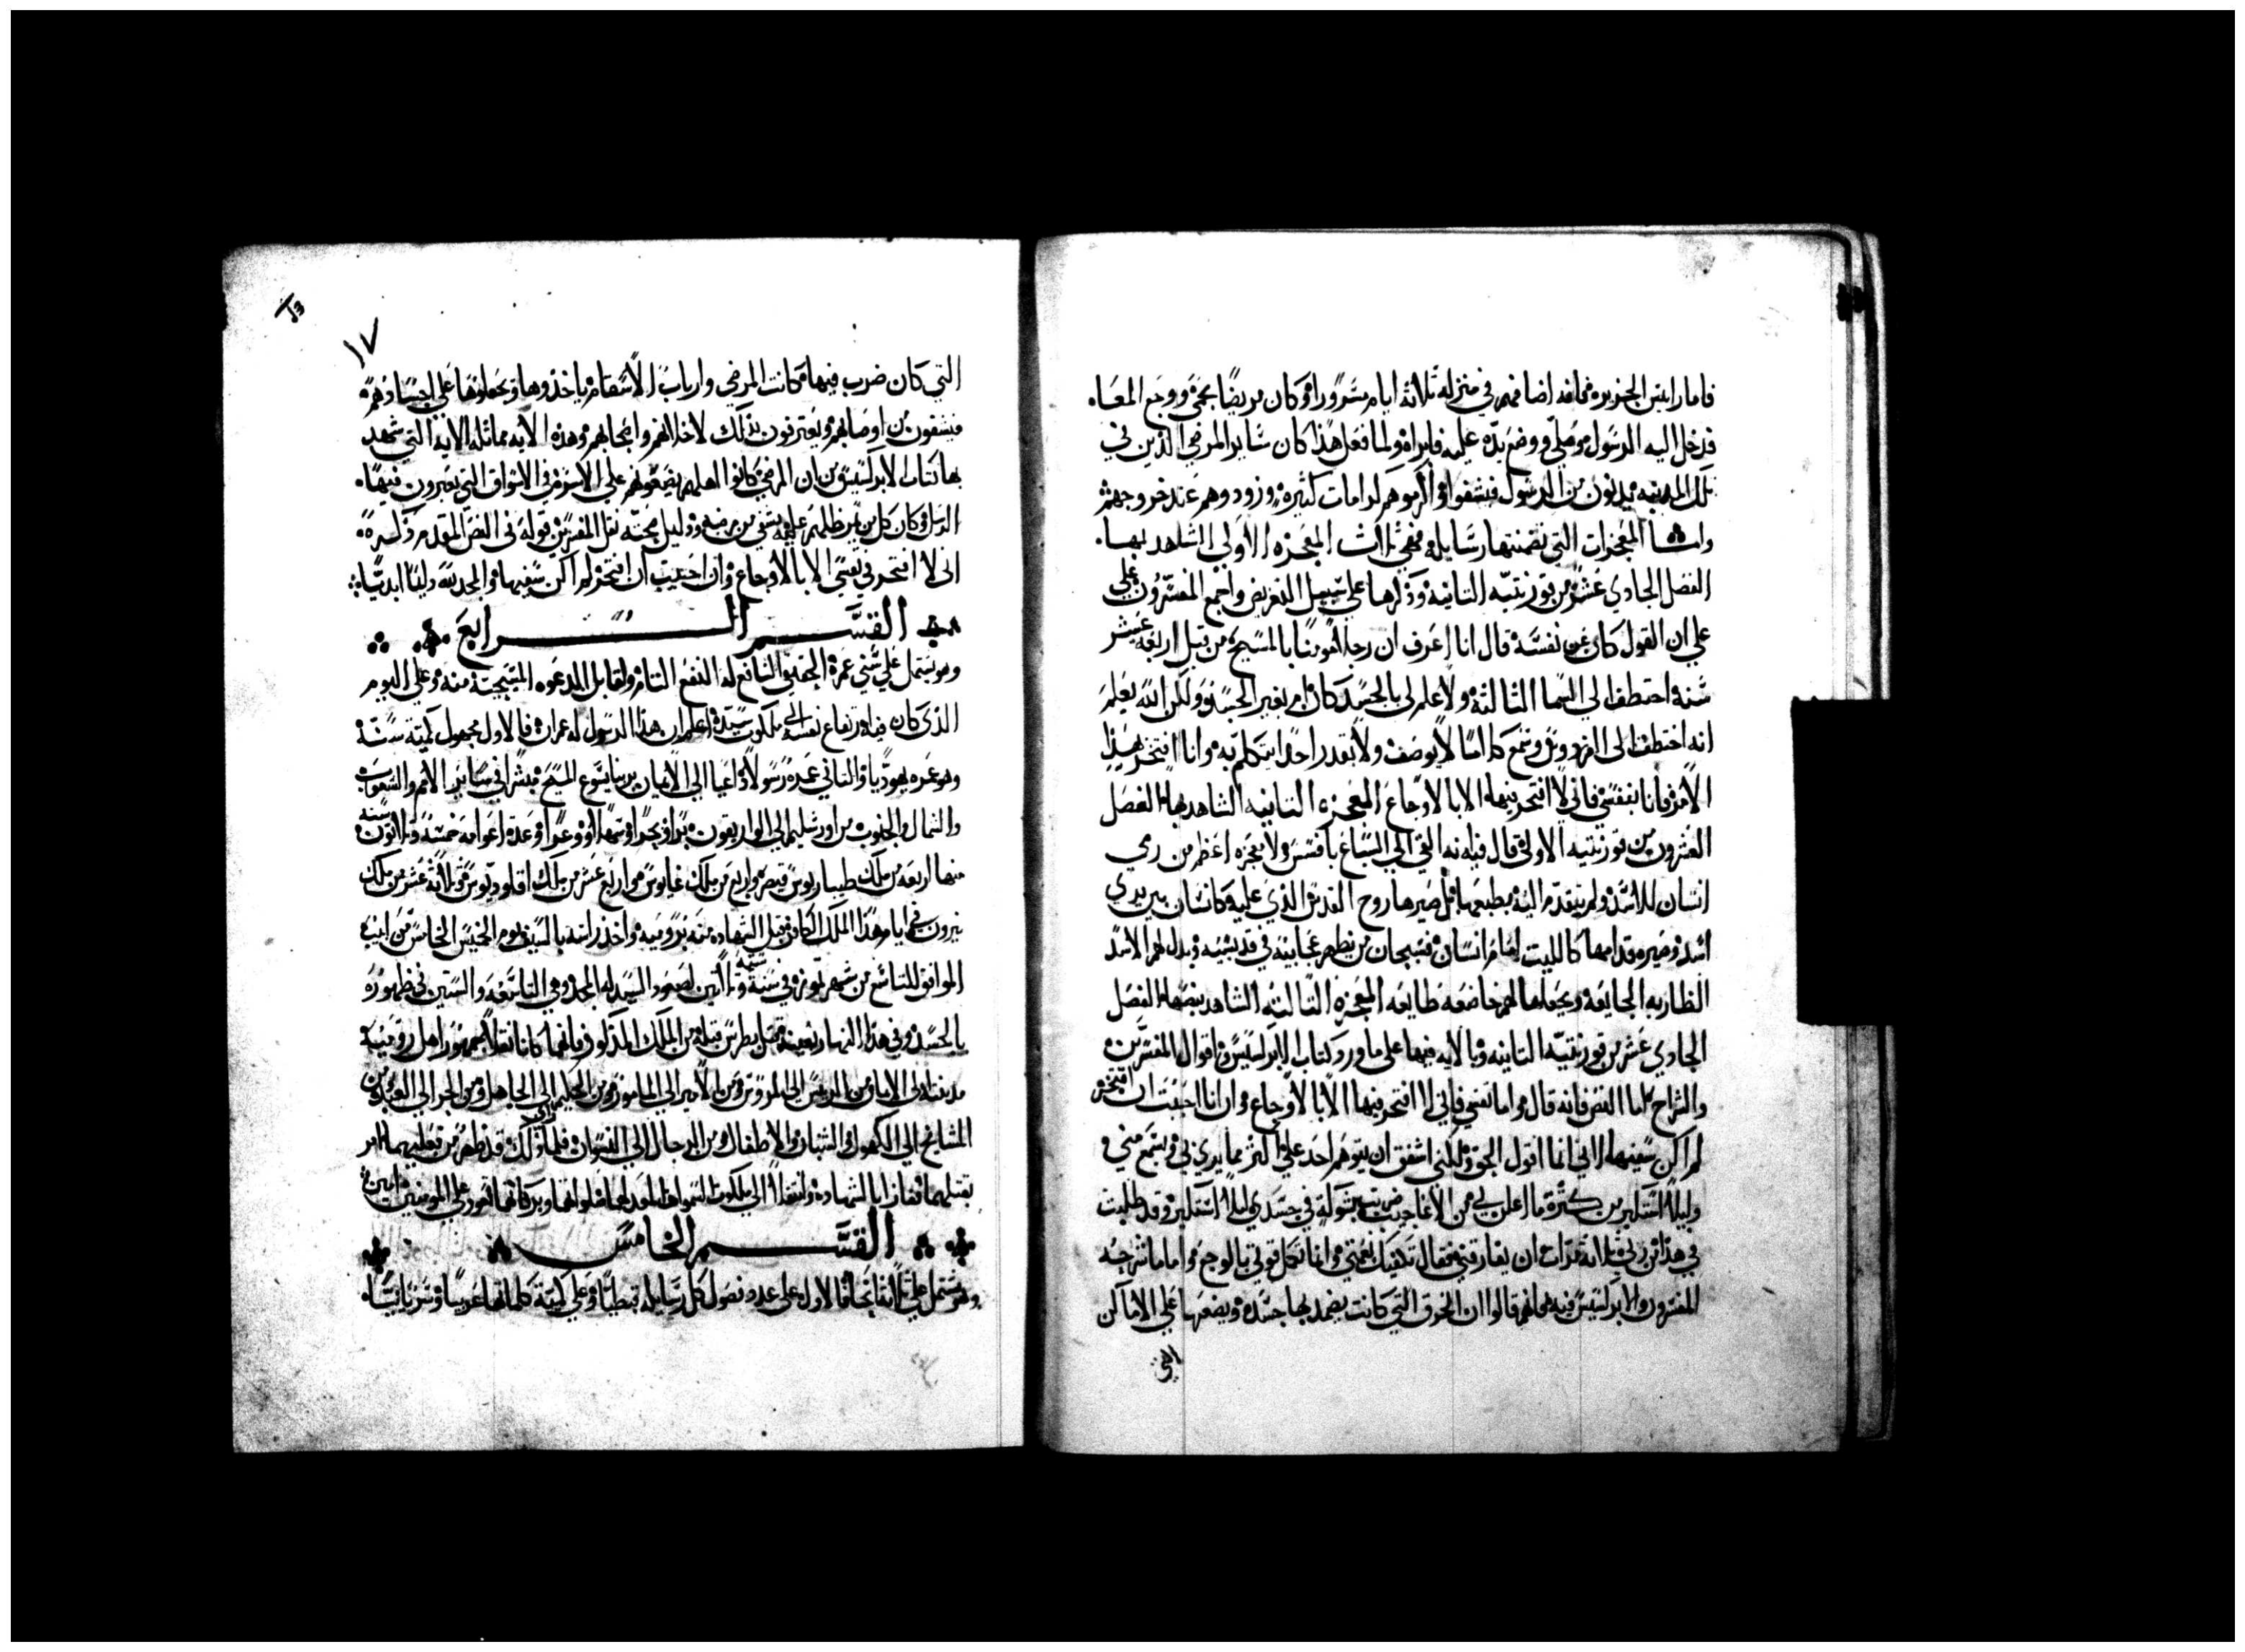 فاما رايس الجزيره فانه اضافهم في منزله ثلاثة ايام مسرورا وكان مريضا بحمى ووجع المعا.
فدخل اليه الرسول وصلى ووضع يده عليه فابراه ولما فعل هذا كان ساير المرضي الذين في
تلك المدينه يدنون من الرسول فيشفوا واكرموهم كرامات كثيره وزودوهم عند خروجهم
واما المعجزات التي تضمنتها رسايله فهي ثلاث المعجزه الاولي الشاهد بها.
الفصل الحادي عشر من قورنتيه الثانيه وذكرها علي سبيل التعريض واجمع المفسرون علي
علي ان القول كان عن نفسه قال انا اعرف ان رجلا مومنا بالمسيح من قبل اربعة عشر
سنة اختطف الي السما الثالثة ولا علم لي بالجسد كان ام بغير الجسد ولكن الله يعلم
انه اختطف الى الفردوس وسمع كلاما لا يوصف ولا يقدر احدا يتكلم به وانا افتخر بهذا
الامر فانا بنفسي فاني لا افتخر فيها الا بالاوجاع المعجزه الثانيه الشاهد بها الفصل
العشرون من قورنتيه الاولة قال فيه انه القي الي السباع بافسس ولا معجزه اعظم من رمي
انسان للاسد ولم يتقدم اليه بطبعها بل صيرها روح القدس الذي عليه كانسان بين يدي
اسد وصيره قدامها كالليت امام انسان فسبحان من يظهر عجايبه في قديسيه ويدل لهم الاسد
الضاريه الجايعه ويجعلها لهم خاضعه طايعه المعجزه الثالثه الشاهد بنصها الفصل
الحادي عشر من قورنتيه الثانيه وبالايه فيها علي ما ورد كتاب الابركسيس واقوال المفسرين
والشراح اما النص فانه قال واما نفسي فاني لا افتخر فيها الا بالاوجاع وان انا احببت ان افتخر
لم اكن سفيها لاني انما اقول الحق ولكني اشفق ان يتوهم احد علي اكثر مما يري بي ويسمع مني و
وليلا استكبر من كثرة ما اعلن لي من الاعاجيب ضربت بشوكة في جسدي ليلا استكبر وقد طلبت
في هذا من ربي ثلاثة مرات ان يفارقني فقال تكفيك نعمتي وانما تكمل قوتي بالوجع واما ما شرحه
المفسرون والابركسيس فيه فانهم قالوا ان الخرق التي كانت يضمد بها جسده ويضعها علي الاماكن
التي
١٧
التي كان ضرب فيها فكانت المرضي وارباب الاسقام ياخذوها ويجعلوها علي اجسادهم
فيشفون من اوصابهم ويعترفون بذلك لاخدانهم واصحابهم وهذه الايه مماثله الايه التي شهد
بها كتاب الابركسيس من ان المرضي كانوا اهلهم يضعونهم علي الاسره في الاسواق التي يعبرون فيها.
الرسل وكان كل من ظلهم عليه يشفي من مرضه ودليل صحته نقل المفسرين قوله في النص المقدم ذكره
انى لا افتخر في نفسي الا بالاوجاع وان احببت ان افتخر لم اكن سفيها والمجد لله دايما ابديا
القسم الرابع
وهو يشتمل علي سني عمره الجهتين النافع له النفع التام ولقابل الدعوه المسيحية منه وعلي اليوم
الذي كان فيه ارتفاع نفسه الي ملكوت سيده اعلم ان هذا الرسول له عمران فالاول مجهول كمية سنته
وهو عمره يهوديا والثاني عمره رسولا داعيا الي الايمان بربنا يسوع المسيح مبشرا في ساير الامم والشعوب
والشمال والجنوب من اورشليم الي الواريقون برا وبحرا وسهلا ووعرا وعدة اعوامه خمسة وثلاثون سنه
منها اربعه من ملك طيباريوس قيصر واربع من ملك غايوس واربع عشر من ملك اقلوديوس وثلاثه عشر من ملك
نيرون في ايام هذا الملك الكافر قبل الشهاده منه برومية واخذ راسه بالسيف يوم الخميس الخامس من ابيب
الموافق للتاسع من شهر تموز في سنة سته وثلاثين لصعود السيد له المجد وهي التاسعه والستين في ظهوره
بالجسد وفي هذا النهار بعينه قتل بطرس قبله من الملك المذكور فانهما كانا نقلا جمهور اهل رومية
مدينته الى الايمان من الريس الي المرووس ومن الامير الي المامور ومن الحكيم الي الجاهل ومن الحر الي العبد ومن
المشايخ الي الكهول والشبان والاطفال ومن الرجال الي النسوان فلما راي ذلك قد ظهر من تعليمهما امر
بقتلهما ففازا بالشهاده وانتقلا الي ملكوت السموات المعد لهما صلواتهما وبركاتهما تعود علي المومنين امين
القسم الخامس
وهو يشتمل علي ثلثة ابحاث الاول علي عدد فصول كل رسايله قبطيا وعلي كمية كلماتها عربيا وسريانيا